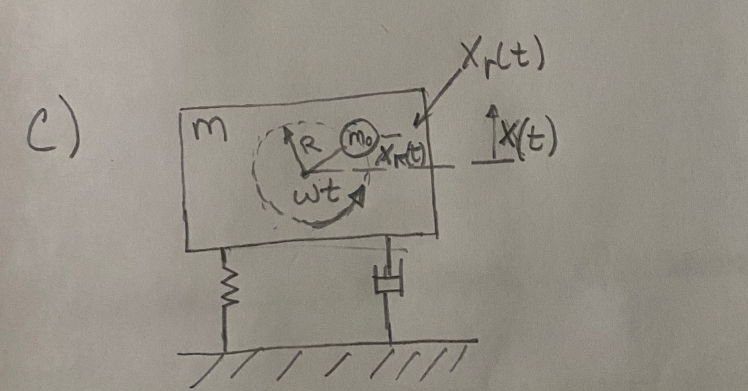 C)
Xr(t)
m
R
m₀
Xr(t)
X(t)
ωt